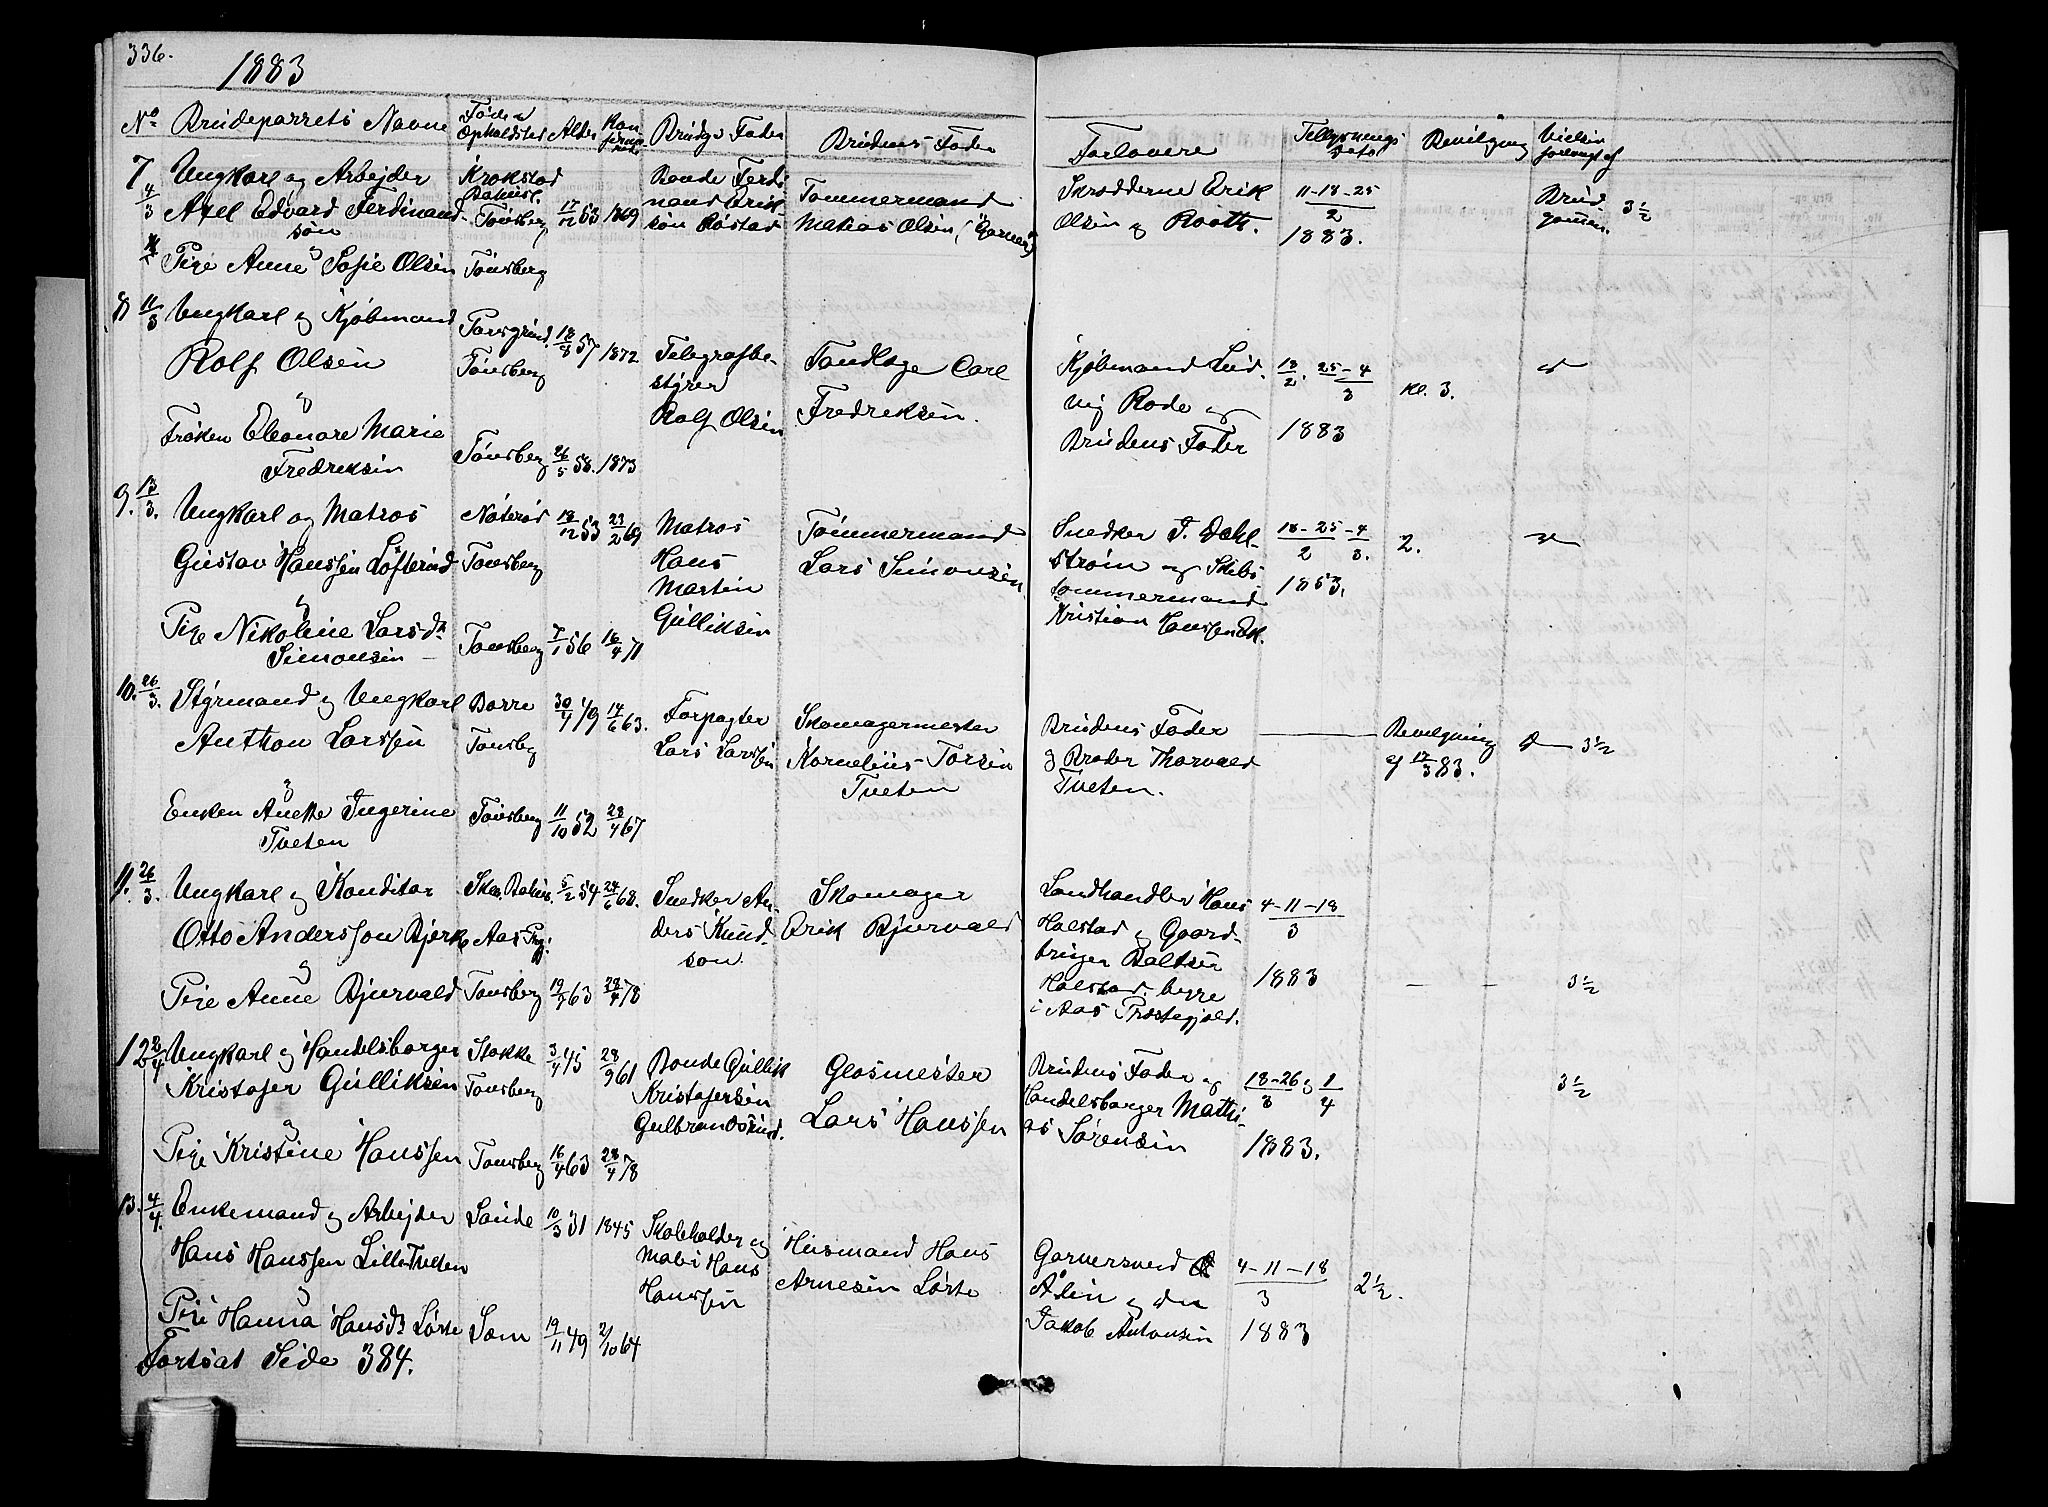 336.
1883
No Brudeparrets Navne Føde og Opholdsted Alder Konfirmeret Brudgs Fader Brudens Fader Forlovere Tillysnings Dato Bevilgning Vielsen forlangt af
7 4/3 Ungkarl og Arbejder Krokstad Bahusl. Tønsberg 17/12 53 1869
Axel Edvard Ferdinandsøn
Bonde Ferdinand Eriksøn Røstad
Tømmermand Matias Olsen, (Garnes)
Skrædderne Erik Olsen og Rooth.
11-18-25/2 1883.
Brudgommen. 3½
& Pige Anne Sofie Olsen Tønsberg
8 11/3 Ungkarl og Kjøbmand Porsgrund. 18/8 57 1872
Rolf Olsen Tønsberg
Telegrafbestyrer Rolf Olsen
Tandlæge Carl Fredriksen.
Kjøbmand Ludvig Rode og Brudens Fader
18/2. 25-4/3 1883
Kl. 3.
og
Frøken Eleonore Marie Fredriksen Tønsberg 26/5 58. 1873
9. 13/3. Ungkarl og Matros Nøterø 18/12 53 23/2 69
Gustav Hanssen Løfterød Tønsberg
Matros Hans Martin Gulliksen
Tømmermand Lars Simonsen
Snedker J. Dahlstrøm og Skibstømmermand Kristian Hanssen Ek.
18-25-4/2 3. 1853.
2.
og
Pige Nikoline Larsdr Simonsen Tønsberg 7/1 56 16/4 71
10. 26/3. Styrmand og Ungkarl Borre 30/4 49 14/6 63.
Anthon Larssen Tønsbg
Forpagter Lars Larssen
Skomagermester Kornelius Torsen Tveten
Brudens Fader og Broder Thorvald Tveten.
Bevilgning af 17/3 83.
3½
og
Enken Anette Ingerine Tveten Tønsberg 11/10 52 28/4 67
11. 26/3. Ungkarl og Konditor Skee, Bahus. 5/2 54 24/6 68.
Otto Andersson Bjerk Aas Prgj:
Snedker Anders Knudson.
Skomager Erik Bjurvald
Landhandler Hans Holstad og Gaardbruger Baltser Holstad. begge i Aas Præstegjeld.
4-11-18/3 1883
- - 3½
og
Pige Anne Bjurvald Tønsberg 19/7 63 28/4 78
12 2/4 Ungkarl og Handelsborger Stokke 3/4 45 28/9 61
Kristofer Gulliksen Tønsberg
Bonde Gullik Kristofersen Gulbrandsrud.
Glasmester Lars Hanssen
Brudens Fader og Handelsborger Mathias Sørensen
18-26/3 og 1/4 1883.
3½
og
Pige Kristine Hanssen Tønsberg 16/4 63 28/4 78
13. 4/4. Enkemand og Arbejder Sande 10/3 31 1845
Hans Hanssen Lille Tveten
Skoleholder og Maler Hans Hanssen
Husmand Hans Arnesen Lørte
Garversvend Ådin og Jakob Antonsen
4-11-18/3 1883
2½.
og
Pige Hanna Hansdr Lørte Sem 19/11 49 2/10 64
Fortsat Side 384.